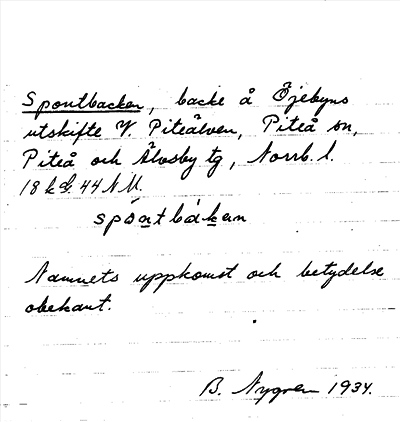 Spontbacken, backe å Öjebyns
utskifte V. Piteälven, Piteå sn,
Piteå och Älvsby tg, Norrb. l.
18 44 N.V.
spòntbàkan
Namnets uppkomst och betydelse
obekant.
B. Nygren 1934.